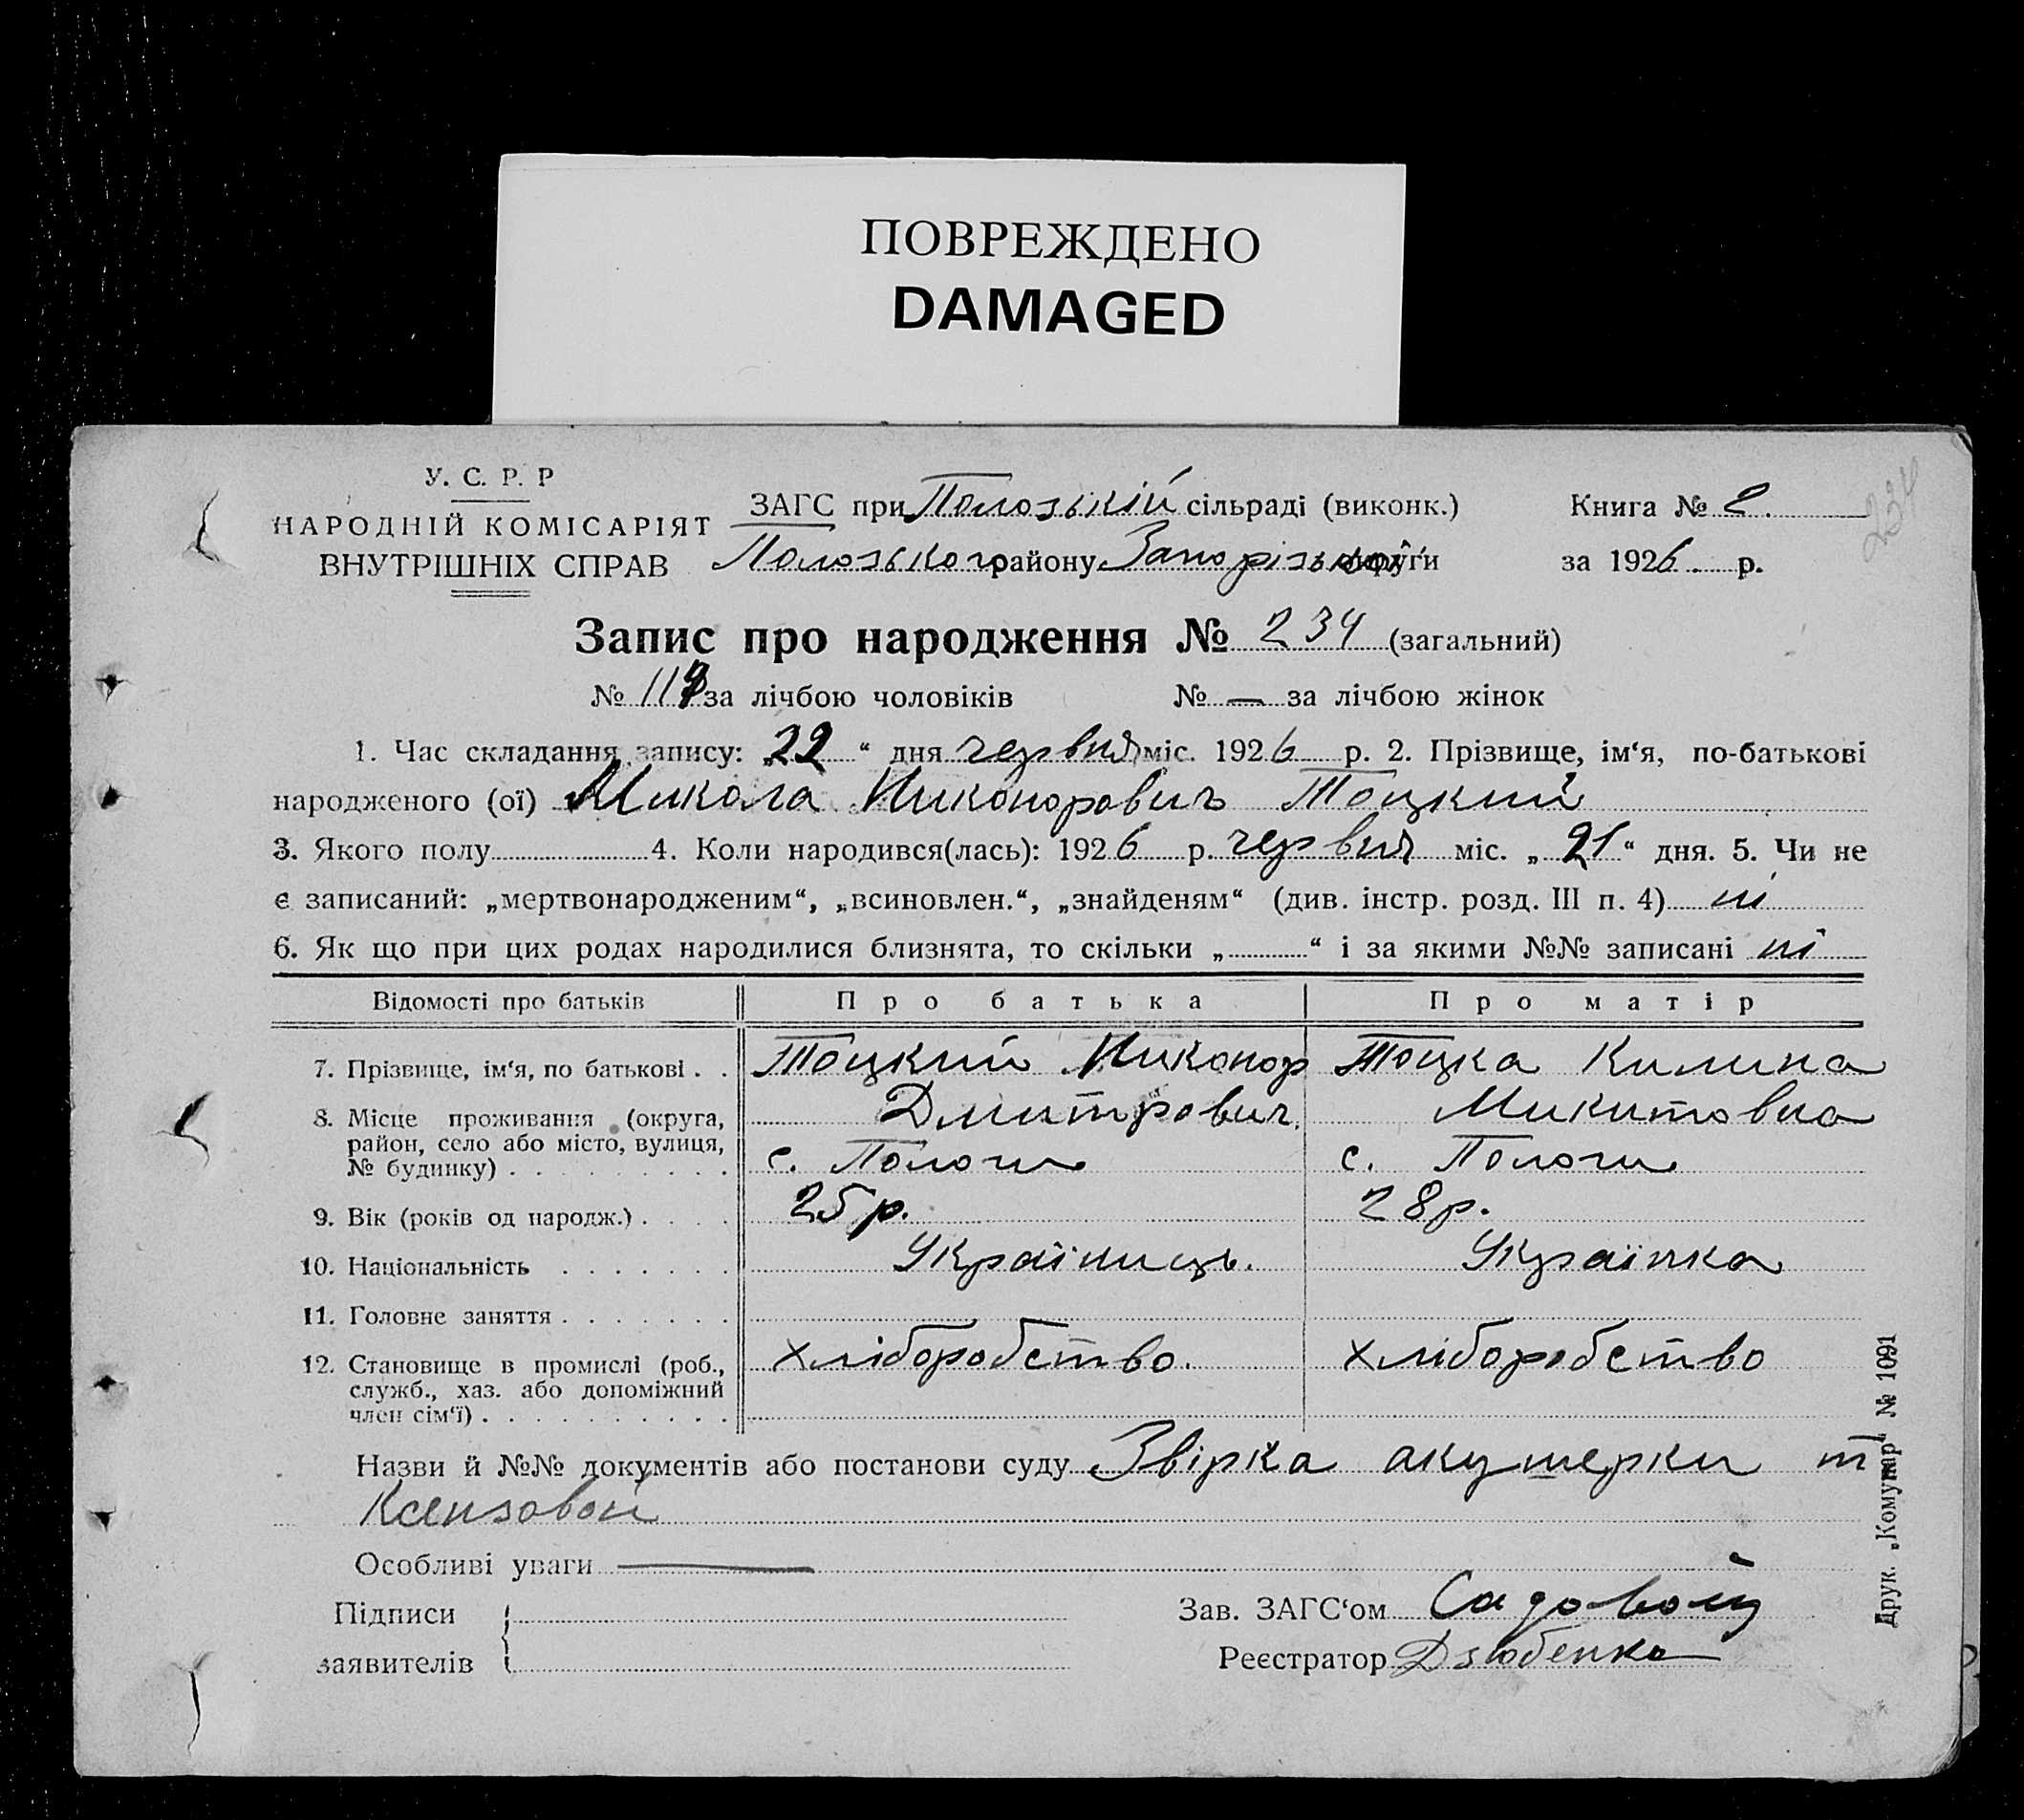 ПОВРЕЖДЕНО
DAMAGED
У. С. Р. Р
НАРОДНІЙ КОМІСАРІЯТ
ВНУТРІШНІХ СПРАВ
ЗАГС при Пологькій сільраді (виконк.)
Пологького району Запорізької округи
Книга № 2.
за 1926. р.
234
Запис про народження № 234 (загальний)
№ 119 за лічбою чоловіків № — за лічбою жінок
1. Час складання запису: „22“ дня червня міс. 1926 р. 2. Прізвище, ім‘я, по-батькові
народженого (ої) Микола Никонорович Тоцкий
3. Якого полу 4. Коли народився(лась): 1926 р. червня міс. „21“ дня. 5. Чи не
є записаний: „мертвонародженим“, „всиновлен.“, „знайденям“ (див. інстр. розд. III п. 4) ні
6. Як що при цих родах народилися близнята, то скільки „ “ і за якими №№ записані ні
Відомості про батьків Про батька Про матір
7. Прізвище, ім‘я, по батькові . . Тоцкий Никонор Тоцка Килина
Дмитрович. Микитовна
8. Місце проживання (округа,
район, село або місто, вулиця,
№ будинку) . . . . . . . . . с. Пологи с. Пологи
9. Вік (років од народж.) . . . . 25 р. 28 р.
10. Національність . . . . . . . Українець. Українка
11. Головне заняття . . . . . . .
12. Становище в промислі (роб., хліборобство. хліборобство
служб., хаз. або допоміжний
член сім‘ї) . . . . . . . . . .
Назви й №№ документів або постанови суду Звірка акушерки т
Ксензовой
Особливі уваги —
Підписи
заявителів
Зав. ЗАГС‘ом Садовой
Реєстратор Дзюбенко
Друк. „Комунар“ № 1091